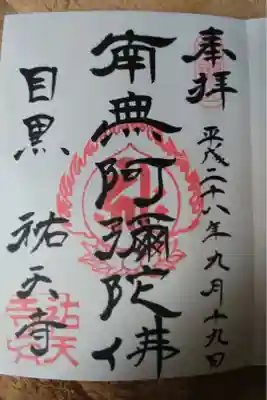 奉拝
平成二十八年九月十九日
南無阿彌陀佛
目黒 祐天寺
祐天寺